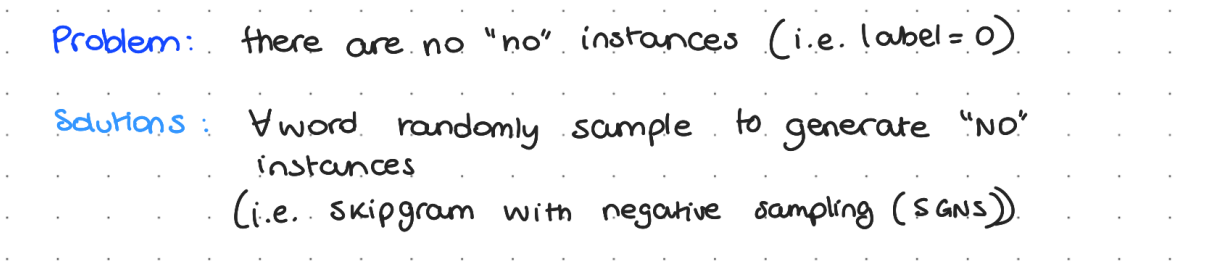 Problem: there are no "no" instances (i.e. label = 0)
Solutions: ∀ word randomly sample to generate "NO"
instances
(i.e. skipgram with negative sampling (SGNS))